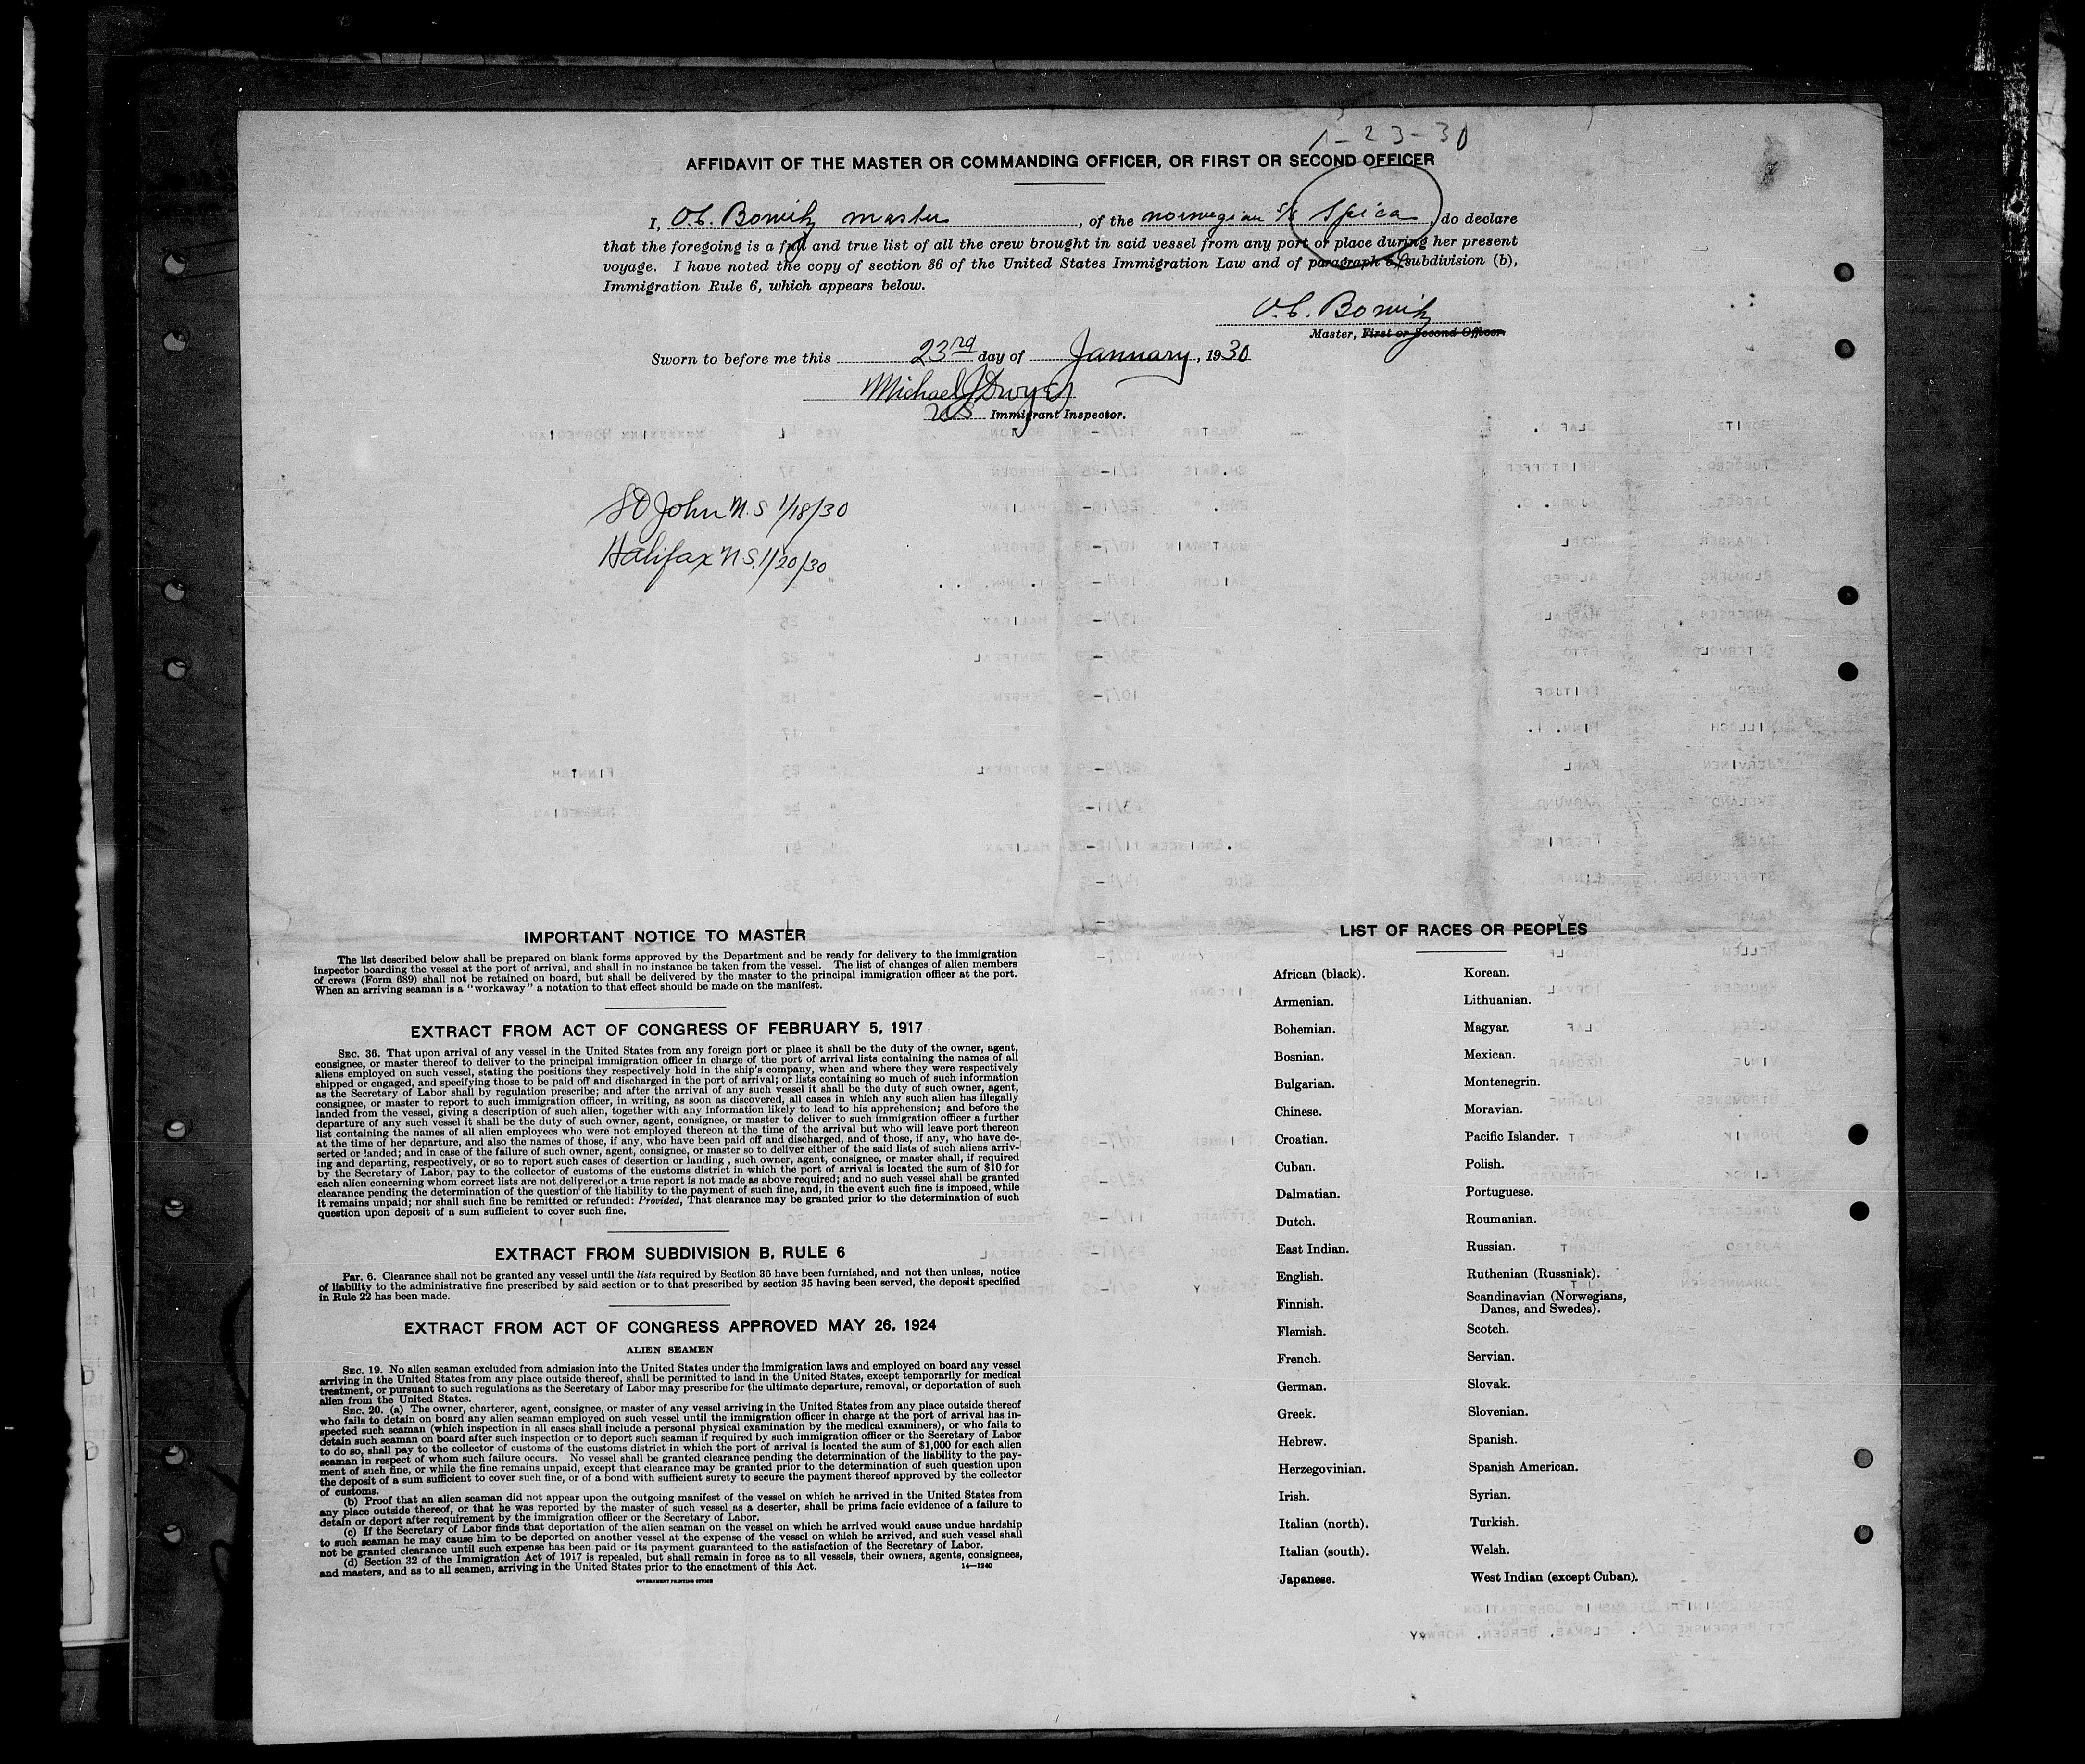 1-23-30
AFFIDAVIT OF THE MASTER OR COMMANDING OFFICER, OR FIRST OR SECOND OFFICER
I, O.C. Bowitz master, of the norwegian s/s Spica, do declare
that the foregoing is a full and true list of all the crew brought in said vessel from any port or place during her present
voyage. I have noted the copy of section 36 of the United States Immigration Law and of paragraph 6, subdivision (b),
Immigration Rule 6, which appears below.
O.C. Bowitz
Master, First or Second Officer.
Sworn to before me this 23rd day of January, 1930
Michael J Dwyer
US Immigrant Inspector.
St John N.S 1/18/30
Halifax N.S. 1/20/30
IMPORTANT NOTICE TO MASTER
The list described below shall be prepared on blank forms approved by the Department and be ready for delivery to the immigration
inspector boarding the vessel at the port of arrival, and shall in no instance be taken from the vessel. The list of changes of alien members
of crews (Form 689) shall not be retained on board, but shall be delivered by the master to the principal immigration officer at the port.
When an arriving seaman is a "workaway" a notation to that effect should be made on the manifest.
EXTRACT FROM ACT OF CONGRESS OF FEBRUARY 5, 1917
SEC. 36. That upon arrival of any vessel in the United States from any foreign port or place it shall be the duty of the owner, agent,
consignee, or master thereof to deliver to the principal immigration officer in charge of the port of arrival lists containing the names of all
aliens employed on such vessel, stating the positions they respectively hold in the ship's company, when and where they were respectively
shipped or engaged, and specifying those to be paid off and discharged in the port of arrival; or lists containing so much of such information
as the Secretary of Labor shall by regulation prescribe; and after the arrival of any such vessel it shall be the duty of such owner, agent,
consignee, or master to report to such immigration officer, in writing, as soon as discovered, all cases in which any such alien has illegally
landed from the vessel, giving a description of such alien, together with any information likely to lead to his apprehension; and before the
departure of any such vessel it shall be the duty of such owner, agent, consignee, or master to deliver to such immigration officer a further
list containing the names of all alien employees who were not employed thereon at the time of the arrival but who will leave port thereon
at the time of her departure, and also the names of those, if any, who have been paid off and discharged, and of those, if any, who have de-
serted or landed; and in case of the failure of such owner, agent, consignee, or master so to deliver either of the said lists of such aliens arriv-
ing and departing, respectively, or so to report such cases of desertion or landing, such owner, agent, consignee, or master shall, if required
by the Secretary of Labor, pay to the collector of customs of the customs district in which the port of arrival is located the sum of $10 for
each alien concerning whom correct lists are not delivered or a true report is not made as above required; and no such vessel shall be granted
clearance pending the determination of the question of the liability to the payment of such fine, and, in the event such fine is imposed, while
it remains unpaid; nor shall such fine be remitted or refunded: Provided, That clearance may be granted prior to the determination of such
question upon deposit of a sum sufficient to cover such fine.
EXTRACT FROM SUBDIVISION B, RULE 6
PAR. 6. Clearance shall not be granted any vessel until the lists required by Section 36 have been furnished, and not then unless, notice
of liability to the administrative fine prescribed by said section or to that prescribed by section 35 having been served, the deposit specified
in Rule 22 has been made.
EXTRACT FROM ACT OF CONGRESS APPROVED MAY 26, 1924
ALIEN SEAMEN
SEC. 19. No alien seaman excluded from admission into the United States under the immigration laws and employed on board any vessel
arriving in the United States from any place outside thereof, shall be permitted to land in the United States, except temporarily for medical
treatment, or pursuant to such regulations as the Secretary of Labor may prescribe for the ultimate departure, removal, or deportation of such
alien from the United States.
SEC. 20. (a) The owner, charterer, agent, consignee, or master of any vessel arriving in the United States from any place outside thereof
who fails to detain on board any alien seaman employed on such vessel until the immigration officer in charge at the port of arrival has in-
spected such seaman (which inspection in all cases shall include a personal physical examination by the medical examiners), or who fails to
detain such seaman on board after such inspection or to deport such seaman if required by such immigration officer or the Secretary of Labor
to do so, shall pay to the collector of customs of the customs district in which the port of arrival is located the sum of $1,000 for each alien
seaman in respect of whom such failure occurs. No vessel shall be granted clearance pending the determination of the liability to the pay-
ment of such fine, or while the fine remains unpaid, except that clearance may be granted prior to the determination of such question upon
the deposit of a sum sufficient to cover such fine, or of a bond with sufficient surety to secure the payment thereof approved by the collector
of customs.
(b) Proof that an alien seaman did not appear upon the outgoing manifest of the vessel on which he arrived in the United States from
any place outside thereof, or that he was reported by the master of such vessel as a deserter, shall be prima facie evidence of a failure to
detain or deport after requirement by the immigration officer or the Secretary of Labor.
(c) If the Secretary of Labor finds that deportation of the alien seaman on the vessel on which he arrived would cause undue hardship
to such seaman he may cause him to be deported on another vessel at the expense of the vessel on which he arrived, and such vessel shall
not be granted clearance until such expense has been paid or its payment guaranteed to the satisfaction of the Secretary of Labor.
(d) Section 32 of the Immigration Act of 1917 is repealed, but shall remain in force as to all vessels, their owners, agents, consignees,
and masters, and as to all seamen, arriving in the United States prior to the enactment of this Act. 14—1240
GOVERNMENT PRINTING OFFICE
LIST OF RACES OR PEOPLES
African (black).
Armenian.
Bohemian.
Bosnian.
Bulgarian.
Chinese.
Croatian.
Cuban.
Dalmatian.
Dutch.
East Indian.
English.
Finnish.
Flemish.
French.
German.
Greek.
Hebrew.
Herzegovinian.
Irish.
Italian (north).
Italian (south).
Japanese.
Korean.
Lithuanian.
Magyar.
Mexican.
Montenegrin.
Moravian.
Pacific Islander.
Polish.
Portuguese.
Roumanian.
Russian.
Ruthenian (Russniak).
Scandinavian (Norwegians,
Danes, and Swedes).
Scotch.
Servian.
Slovak.
Slovenian.
Spanish.
Spanish American.
Syrian.
Turkish.
Welsh.
West Indian (except Cuban).